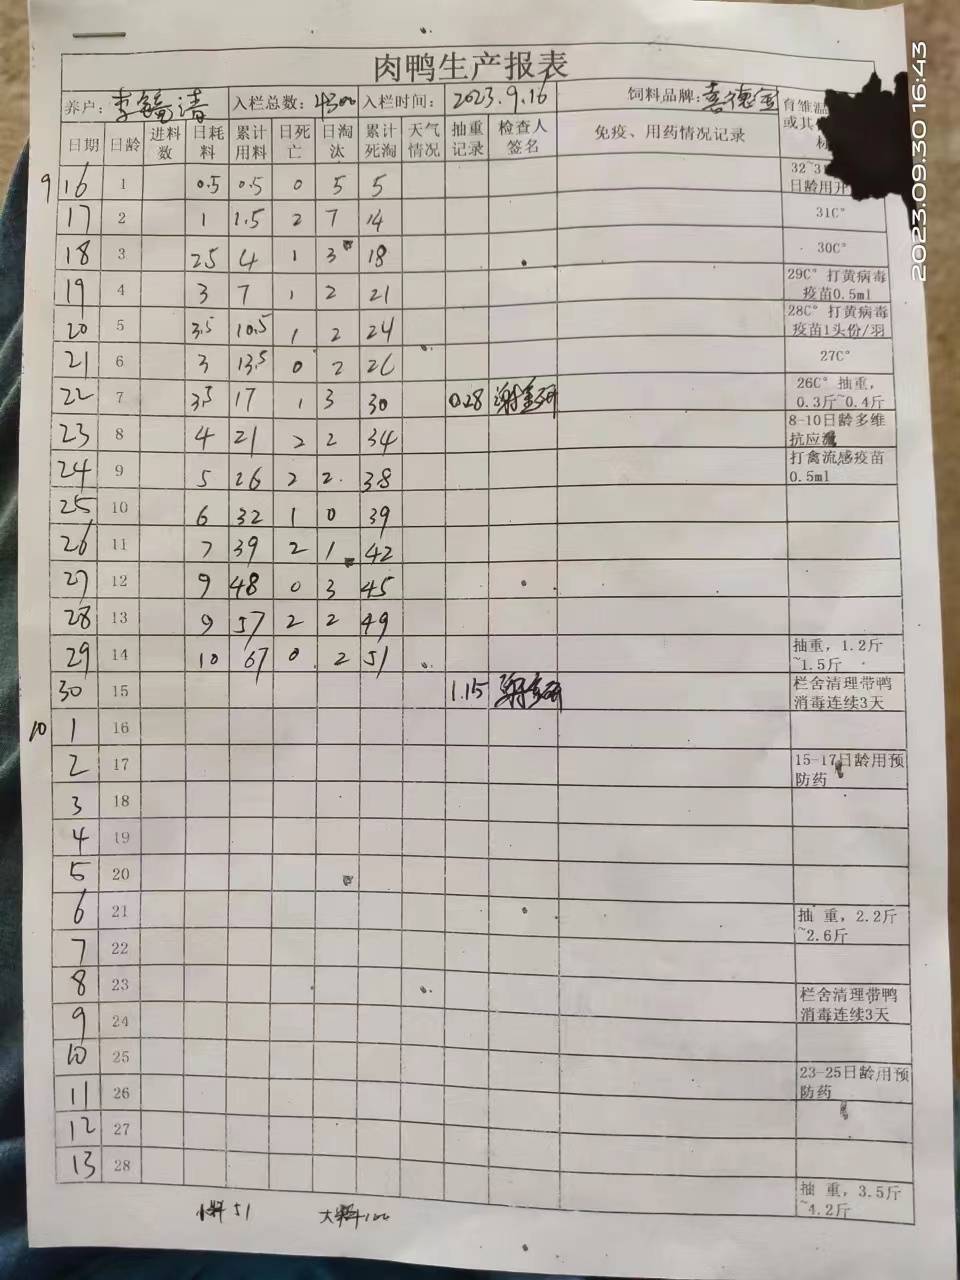 肉鸭生产报表
养户: 李 清 入栏总数: 4300 入栏时间: 2023.9.16 饲料品牌: 喜德宝
日期 日龄 进料数 日耗料 累计用料 日死亡 日淘汰 累计死淘 天气情况 抽重记录 检查人签名 免疫、用药情况记录 育雏温 或其
9 16 1 0.5 0.5 0 5 5 日龄用开
17 2 1 1.5 2 7 14 31C°
18 3 25 4 1 3 18 30C°
19 4 3 7 1 2 21 29C° 打黄病毒疫苗0.5ml
20 5 3.5 10.5 1 2 24 28C° 打黄病毒疫苗1头份/羽
21 6 3 13.5 0 2 26 27C°
22 7 3.5 17 1 3 30 0.28 26C° 抽重，0.3斤~0.4斤
23 8 4 21 2 2 34 8-10日龄多维抗应激
24 9 5 26 2 2 38 打禽流感疫苗0.5ml
25 10 6 32 1 0 39
26 11 7 39 2 1 42
27 12 9 48 0 3 45
28 13 9 57 2 2 49
29 14 10 67 0 2 51 抽重，1.2斤~1.5斤
30 15 1.15 栏舍清理带鸭消毒连续3天
10 1 16
2 17 15-17日龄用预防药
3 18
4 19
5 20
6 21 抽 重，2.2斤~2.6斤
7 22
8 23 栏舍清理带鸭消毒连续3天
9 24
10 25
11 26 23-25日龄用预防药
12 27
13 28
抽 重，3.5斤~4.2斤
小料51 大料100
2023.09.30 16:43